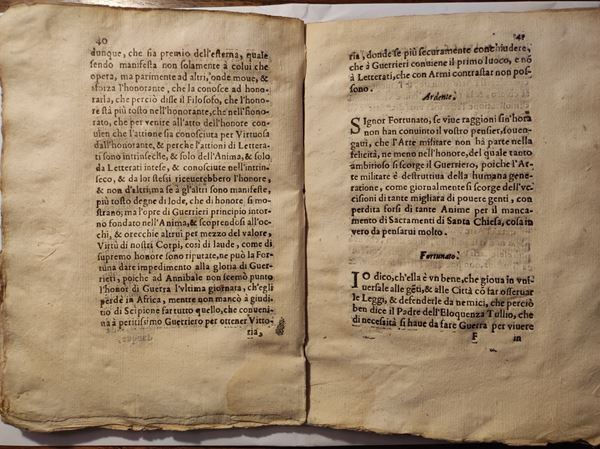 40
dunque, che sia premio dell'esterna, quale
sendo manifesta non solamente à colui che
opera, ma parimente ad altri, onde moue, &
sforza l'honorante, che la conosce ad hono-
rarla, che perciò disse il Filosofo, che l'hono-
re stà più tosto nell'honorante, che nell'hono-
rato, che per venire all'atto dell'honore con-
uien che l'attione sia conosciuta per Virtuosa
dall'honorante, & perche l'attioni di Lettera-
ti sono intrinseche, & solo dell'Anima, & solo
da Letterati intese, & conosciute nell'intrin-
seco, & da lor stessi riceuerebbero l'honore,
& non d'altri, ma se à gl'altri sono manifeste,
più tosto degne di lode, che di honore si mo-
strano; ma l'opre di Guerrieri principio intor-
no fondato nell'Anima, & scoprendosi all'oc-
chi, & orecchie altrui per mezzo del valore,
Virtù di nostri Corpi, così di laude, come di
supremo honore sono riputate, ne può la For-
tuna dare impedimento alla gloria di Guer-
rieri, poiche ad Annibale non scemò punto
l'honor di Guerra l'vltima giornata, ch'egli
perdè in Africa, mentre non mancò à giudi-
tio di Scipione far tutto quello, che conueni-
ua à peritissimo Guerriero per ottener Vitto-
ria,
41
ria, donde se più securamente conchiudere,
che à Guerrieri conuiene il primo luoco, e nō
à Letterati, che con Armi contrastar non pos-
sono.
Ardente.
SIgnor Fortunato, se viue raggioni sin'hora
non han conuinto il vostro pensier, souen-
gaui, che l'Arte militare non hà parte nella
felicità, ne meno nell'honore, del quale tanto
ambitioso si scorge il Guerriero, poiche l'Ar-
te militare è destruttiua della humana gene-
ratione, come giornalmente si scorge dell'vc-
cisioni di tante migliara di pouere genti, con
perdita forsi di tante Anime per il manca-
mento di Sacramenti di Santa Chiesa, cosa in
vero da pensarui molto.
Fortunato.
IO dico, ch'ella è vn bene, che gioua in vni-
uersale alle gēti, & alle Città cō far osseruar
le Leggi, & defenderle da nemici, che perciò
ben dice il Padre dell'Eloquenza Tullio, che
di necessità si haue da fare Guerra per viuere
F in